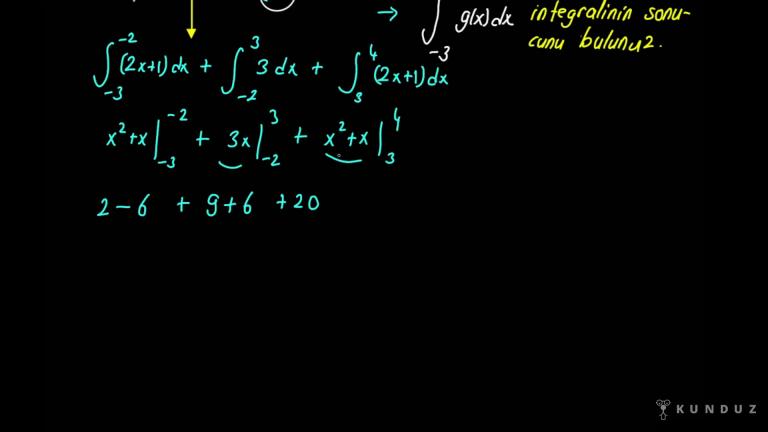 → ∫₋₃ g(x)dx integralinin sonu-
cunu bulunuz.
∫₋₃⁻² (2x+1)dx + ∫₋₂³ 3dx + ∫₃⁴ (2x+1)dx
x²+x|₋₃⁻² + 3x|₋₂³ + x²+x|₃⁴
2-6 + 9+6 +20
KUNDUZ